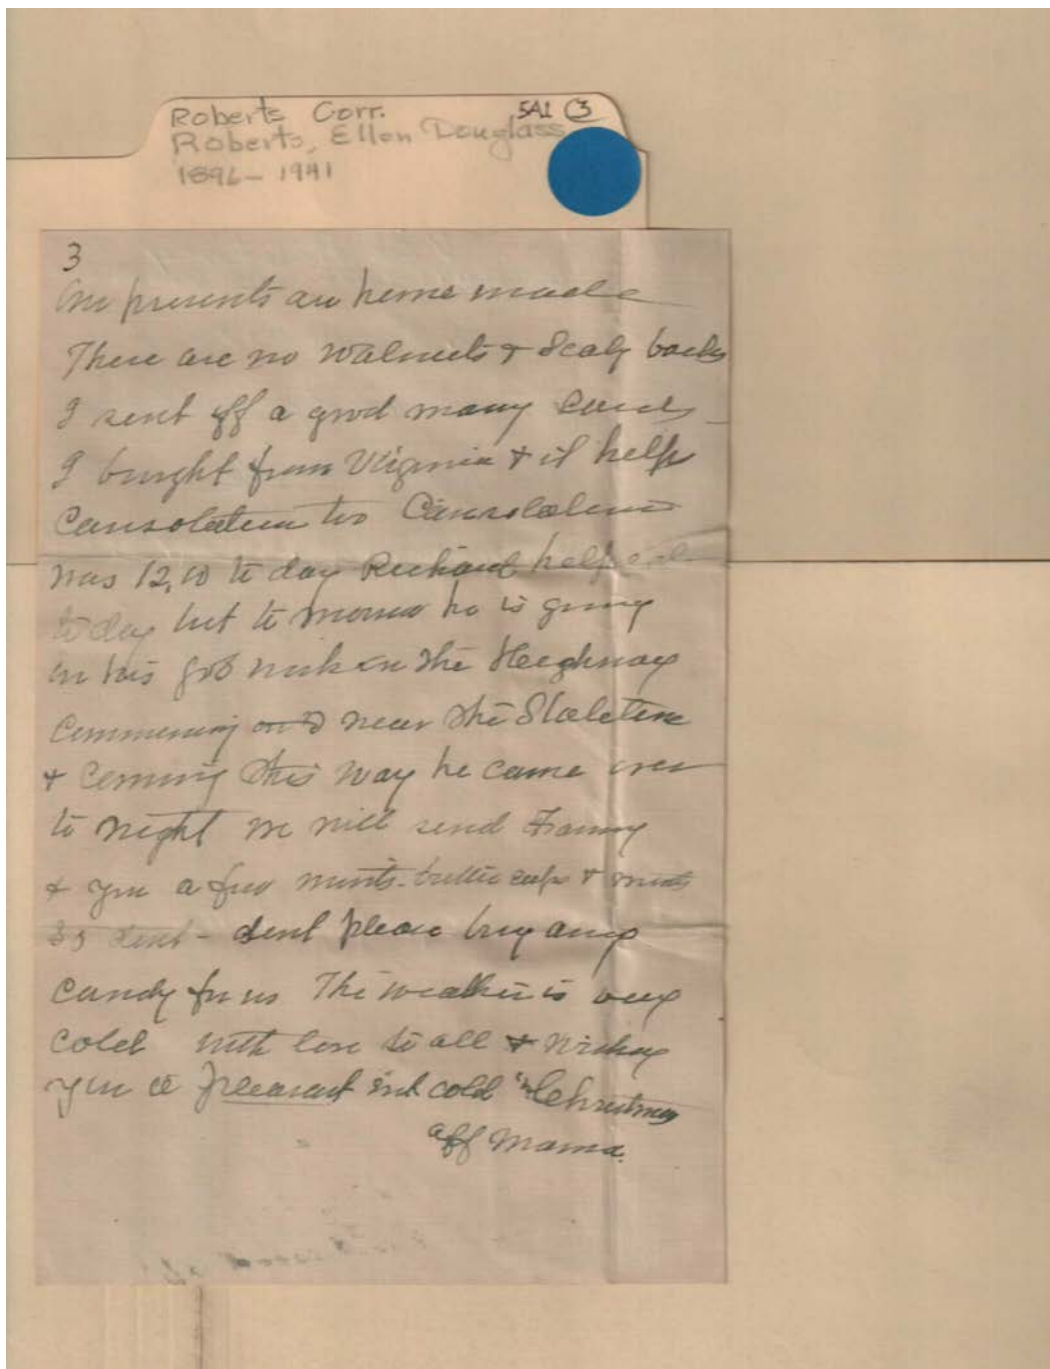 Roberts Corr. 5A1 3
Roberts, Ellen Douglass
1896-1941
3
presents are home made
There are no walnuts & Scaly barks
I sent off a good many cards
I bought from Virginia & it helps
Consolation too Consolation
was 12,10 to day Richard help
to day but to morrow he is going
on his job work on the Heighway
Commencing near the State line
& Coming this way he came over
to night we will send Fanny
& you a few mints. butter cups & mints
35 dont please buy any
Candy for us The weather is very
Cold with love to all & wishing
you a pleasant but cold Christmas
aff Mama.